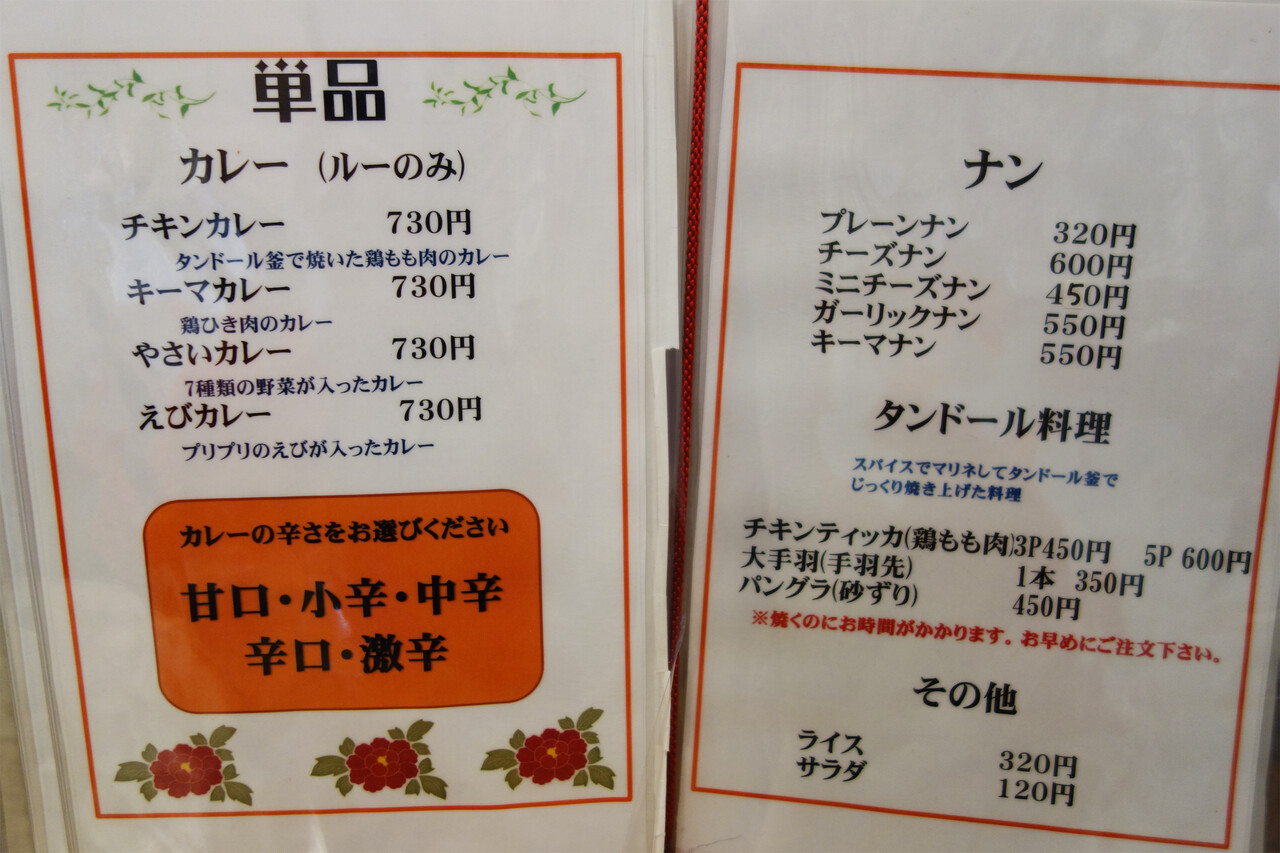 単品
カレー (ルーのみ)
チキンカレー 730円
タンドール釜で焼いた鶏もも肉のカレー
キーマカレー 730円
鶏ひき肉のカレー
やさいカレー 730円
7種類の野菜が入ったカレー
えびカレー 730円
プリプリのえびが入ったカレー
カレーの辛さをお選びください
甘口・小辛・中辛
辛口・激辛
ナン
プレーンナン 320円
チーズナン 600円
ミニチーズナン 450円
ガーリックナン 550円
キーマナン 550円
タンドール料理
スパイスでマリネしてタンドール釜で
じっくり焼き上げた料理
チキンティッカ(鶏もも肉)3P450円 5P 600円
大手羽(手羽先) 1本 350円
パングラ(砂ずり) 450円
※焼くのにお時間がかかります。お早めにご注文下さい。
その他
ライス 320円
サラダ 120円